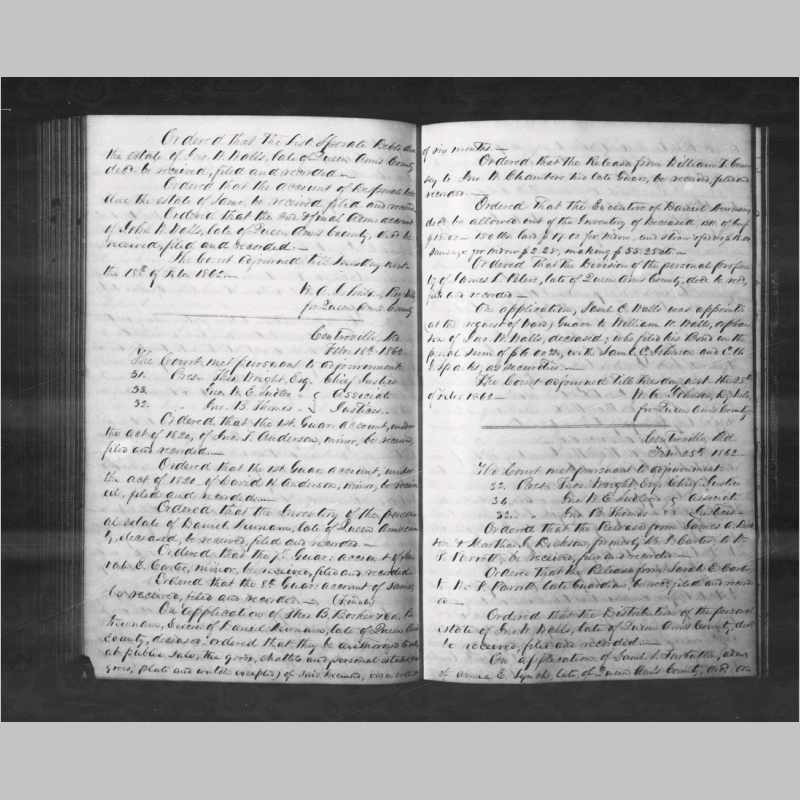 Ordered that the List Sperate Debts due
the estate of Jno. W. Walls, late of Queen Anns County
decd. be received, filed and recorded.
Ordered that the account of Desperate
due the estate of Same, be received, filed and recorded
Ordered that the & final Admn. account
of John W. Walls, late of Queen Anns County, decd. be
received, filed and recorded.
The Court adjourned till Tuesday next
the 18th of Feber 1862.
W. A. Johnson, Reg. Wills
for Queen Anns County
Centreville, Md.
Feber 18th 1862
The Court met pursuant to adjournment
31. Prest. Thos. Wright, Esq. Chief Justice
33. " Jno. W. E. Sudler " & Associate
32. " Jno. B. Thomas " Justices
Ordered that the 1st. Guar. account, under
the act of 1820, of Jno. T. Anderson, minor, be received,
filed and recorded.
Ordered that the 1st Guar. account, under
the act of 1820 of David H. Anderson, minor, be received,
filed and recorded.
Ordered that the Inventory of the personal
estate of Daniel, late of Queen Anns County,
deceased, be received, filed and recorded.
Ordered that the 7th Guar. account of
E. Carter, minor, be received, filed and recorded
Ordered that the 8th Guar. account of Same,
be received, filed and recorded. (Final)
On application of Thos. B.
of Daniel, late of Queen Anns
County, deceased: ordered that they be authorized to
at public sale, the goods, chattels and personal estate
(plate and watch excepted) of said deceased, on a credit
of six months.
Ordered that the Release from William T.
to Jno. W. Chambers his late Guar. be received, filed and
recorded.
Ordered that the Executors of Daniel
decd. be allowed out of the Inventory of Deceased, of Beef
making $55.25
Ordered that the Division of the personal property
of James P., late of Queen Anns County, decd. be recd.,
filed and recorded.
On application, Saml. E. Walls was appointed
at the request of Ward, Guard. to William W. Walls, orphan
son of Jno. W. Walls, deceased; who filed his Bond in the
penal sum of with Saml. E. Johnson and C. W.
Sparks, as securities.
The Court adjourned till Tuesday next the 25th
of Feber 1862
W. A. Johnson, Reg. Wills
for Queen Anns County
Centreville, Md.
Feber 25th 1862
The Court met pursuant to adjournment
32. Prest. Thos. Wright Esq. Chief Justice
34. " Jno. W. E. Sudler " & Associate
33. " Jno. B. Thomas " Justices
Ordered that the Release from James A.
& Martha J., formerly M. J. Carter, to W.
Parrott, be received, filed and recorded.
Ordered that the Release from Sarah E. Carter
to Wm. Parrott, late Guardian, be rec, filed and recorded
Ordered that the Distribution of the personal
estate of Jno. W. Walls, late of Queen Anns County, decd.
be received, filed and recorded.
On application of Saml. T.
of E., late of Queen Anns County, decd.